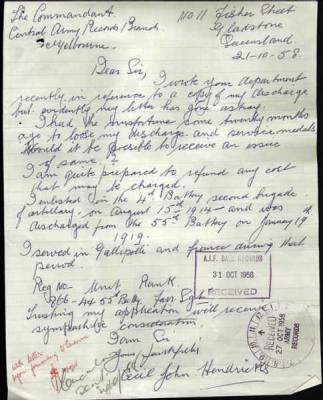 The Commandant
Central Army Records Branch
Melbourne.
No 11 Fisher Street
Gladstone
Queensland.
21-10-58.
Dear Sir,
I wrote your department
recently in reference to a copy of my discharge
but evidently my letter has gone astray.
I had the misfortune some twenty months
ago to loose my discharge and service medals
Would it be possible to receive an issue
of same.?
I am quite prepared to refund any cost
that may be charged.
I enlisted in the 4th Battry second brigade
of artillery, on August 15th 1914 – and was
discharged from the 55th Battry on January 19th
1919.
I served in Gallipolli and france during that
period.
Reg No- Unit Rank.
866 - 44 55 Batty.
Trusting my application will receive
sympathetic consideration
I am Sir
Yours faithfully
Cecil John Hendricks
A.I.F. BASE RECORDS
31 OCT 1958
RECEIVED
RECEIVED
27 OCT 1958
ARMY
RECORDS